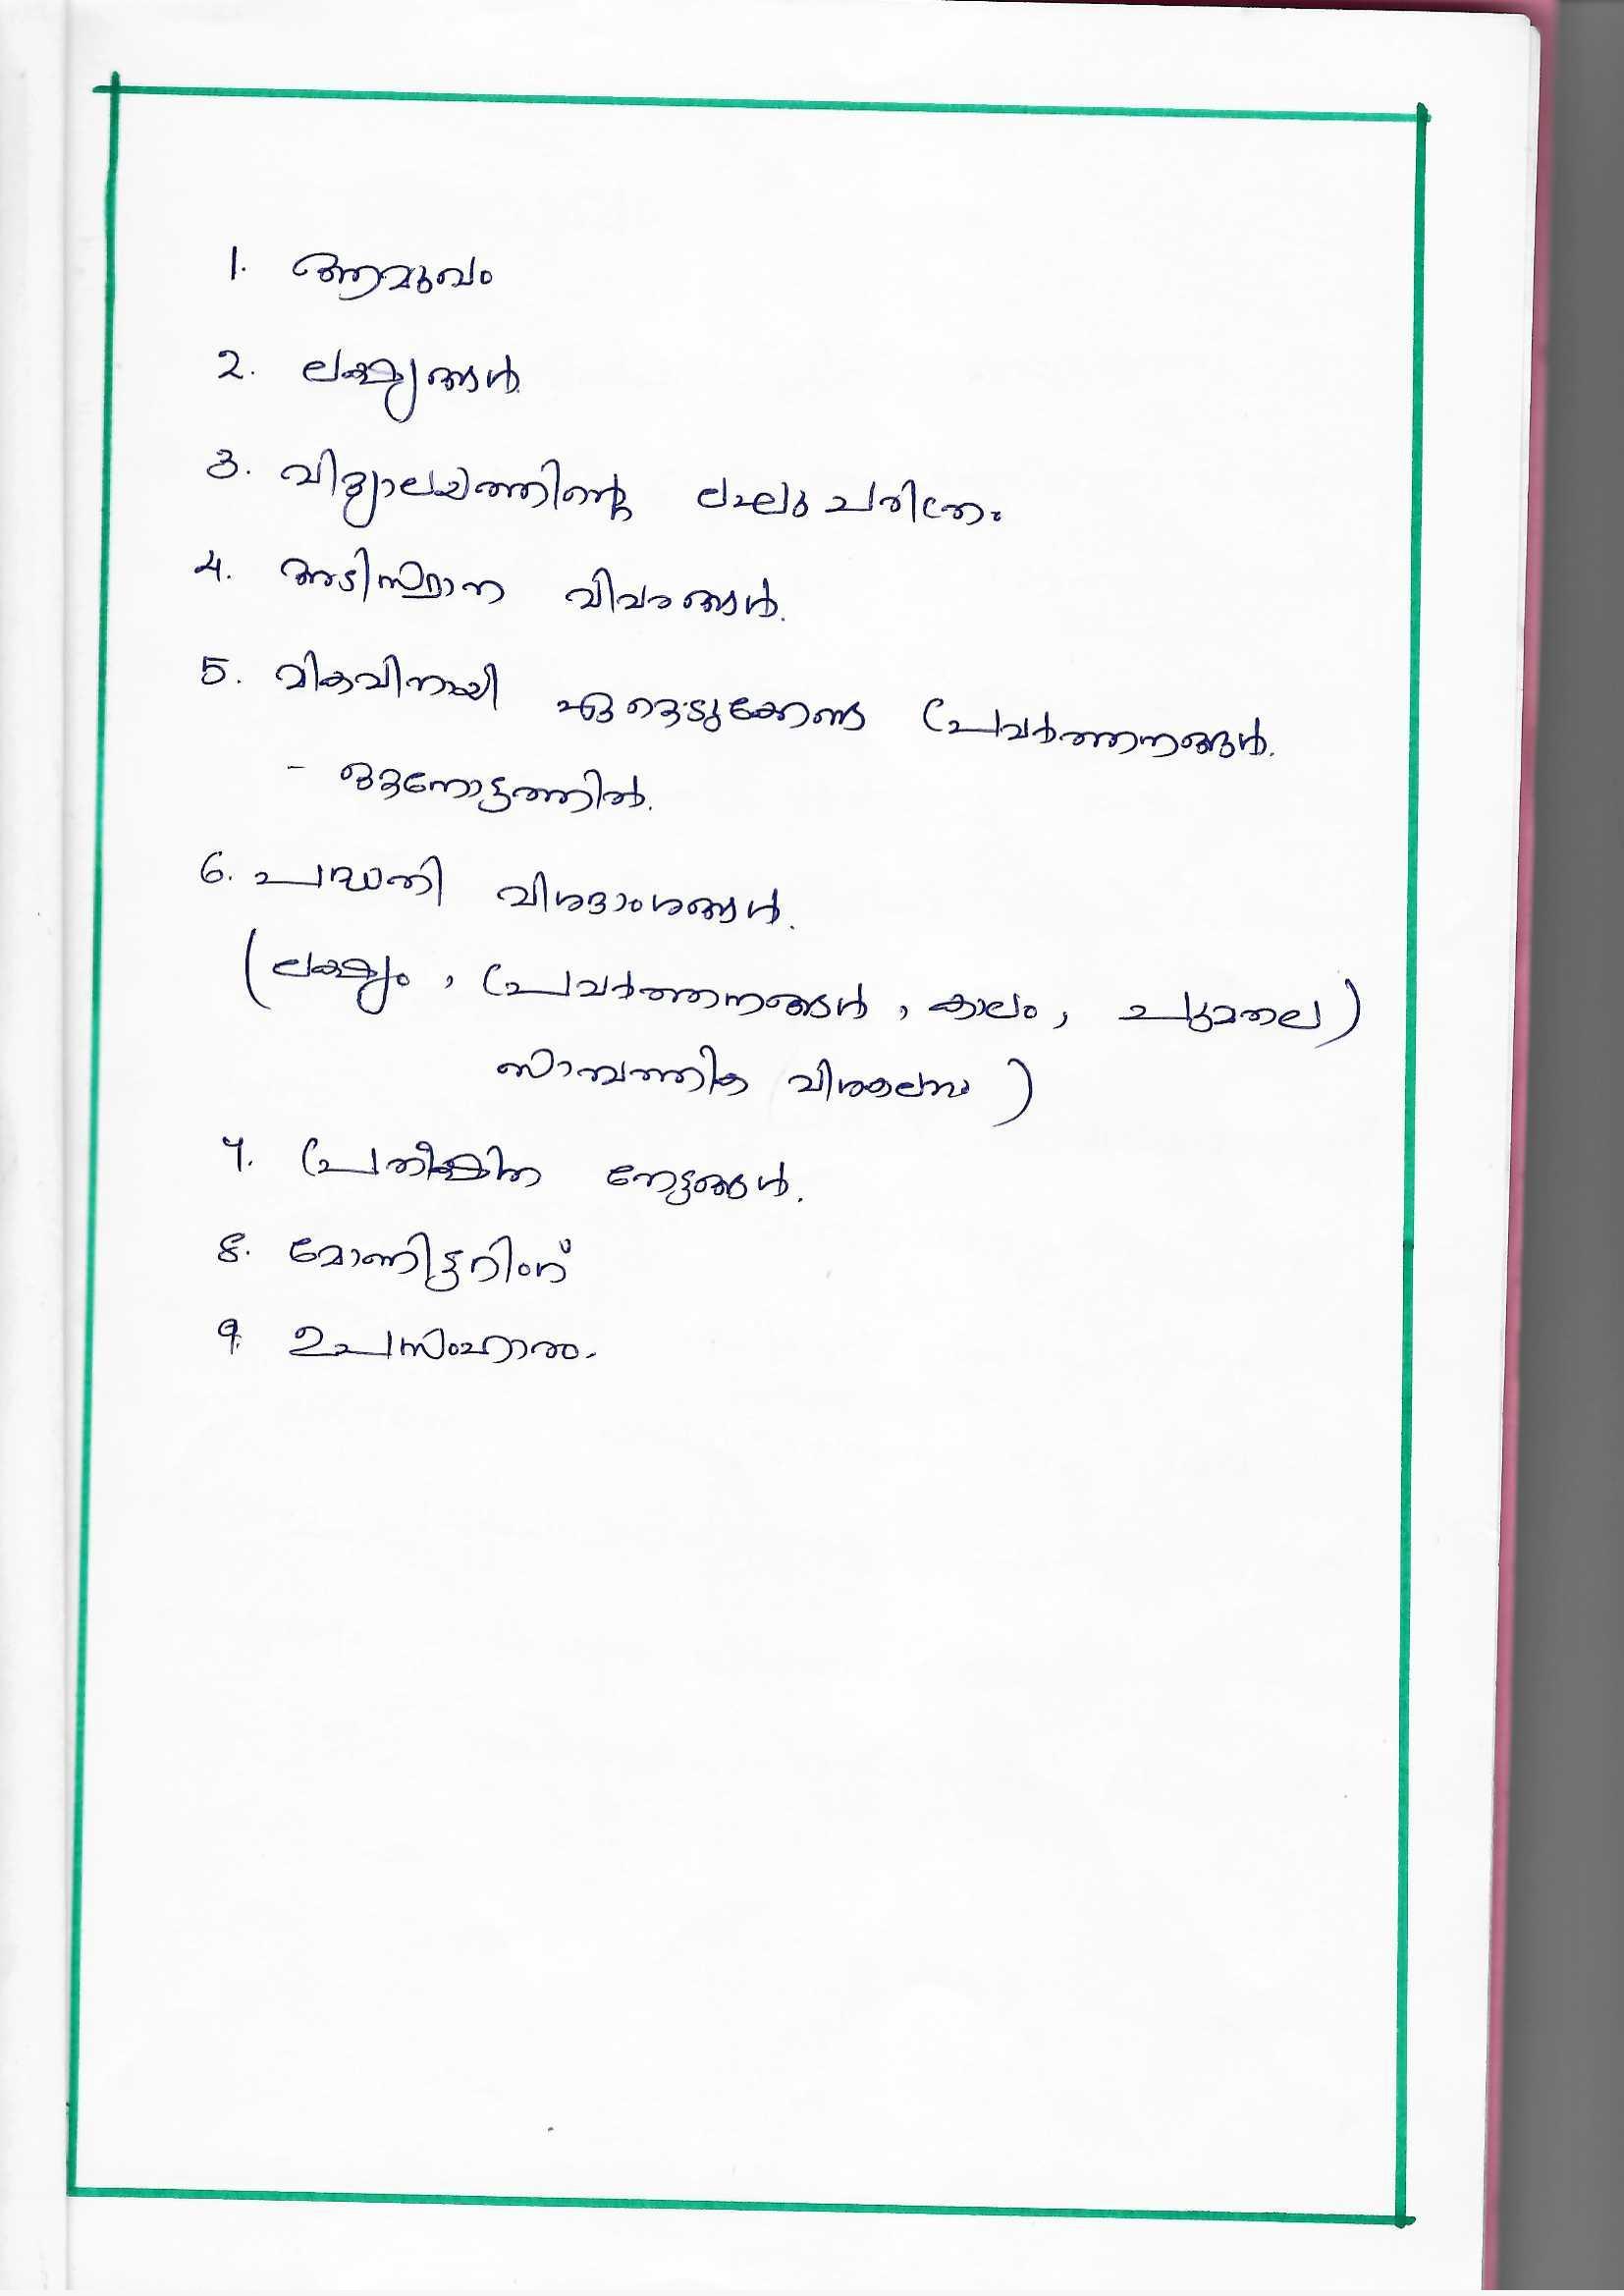 1. ആമുഖം
2. ലക്ഷ്യങ്ങൾ
3. വിദ്യാലയത്തിന്റെ ലഘു ചരിത്രം
4. അടിസ്ഥാന വിവരങ്ങൾ.
5. മികവിനായി ഏറ്റെടുക്കേണ്ട പ്രവർത്തനങ്ങൾ.
- ഒറ്റനോട്ടത്തിൽ.
6. പദ്ധതി വിശദാംശങ്ങൾ.
(ലക്ഷ്യം, പ്രവർത്തനങ്ങൾ, കാലം, ചുമതല)
സാമ്പത്തിക വിശകലനം)
7. പ്രതീക്ഷിത നേട്ടങ്ങൾ.
8. മോണിട്ടറിംഗ്
9. ഉപസംഹാരം.